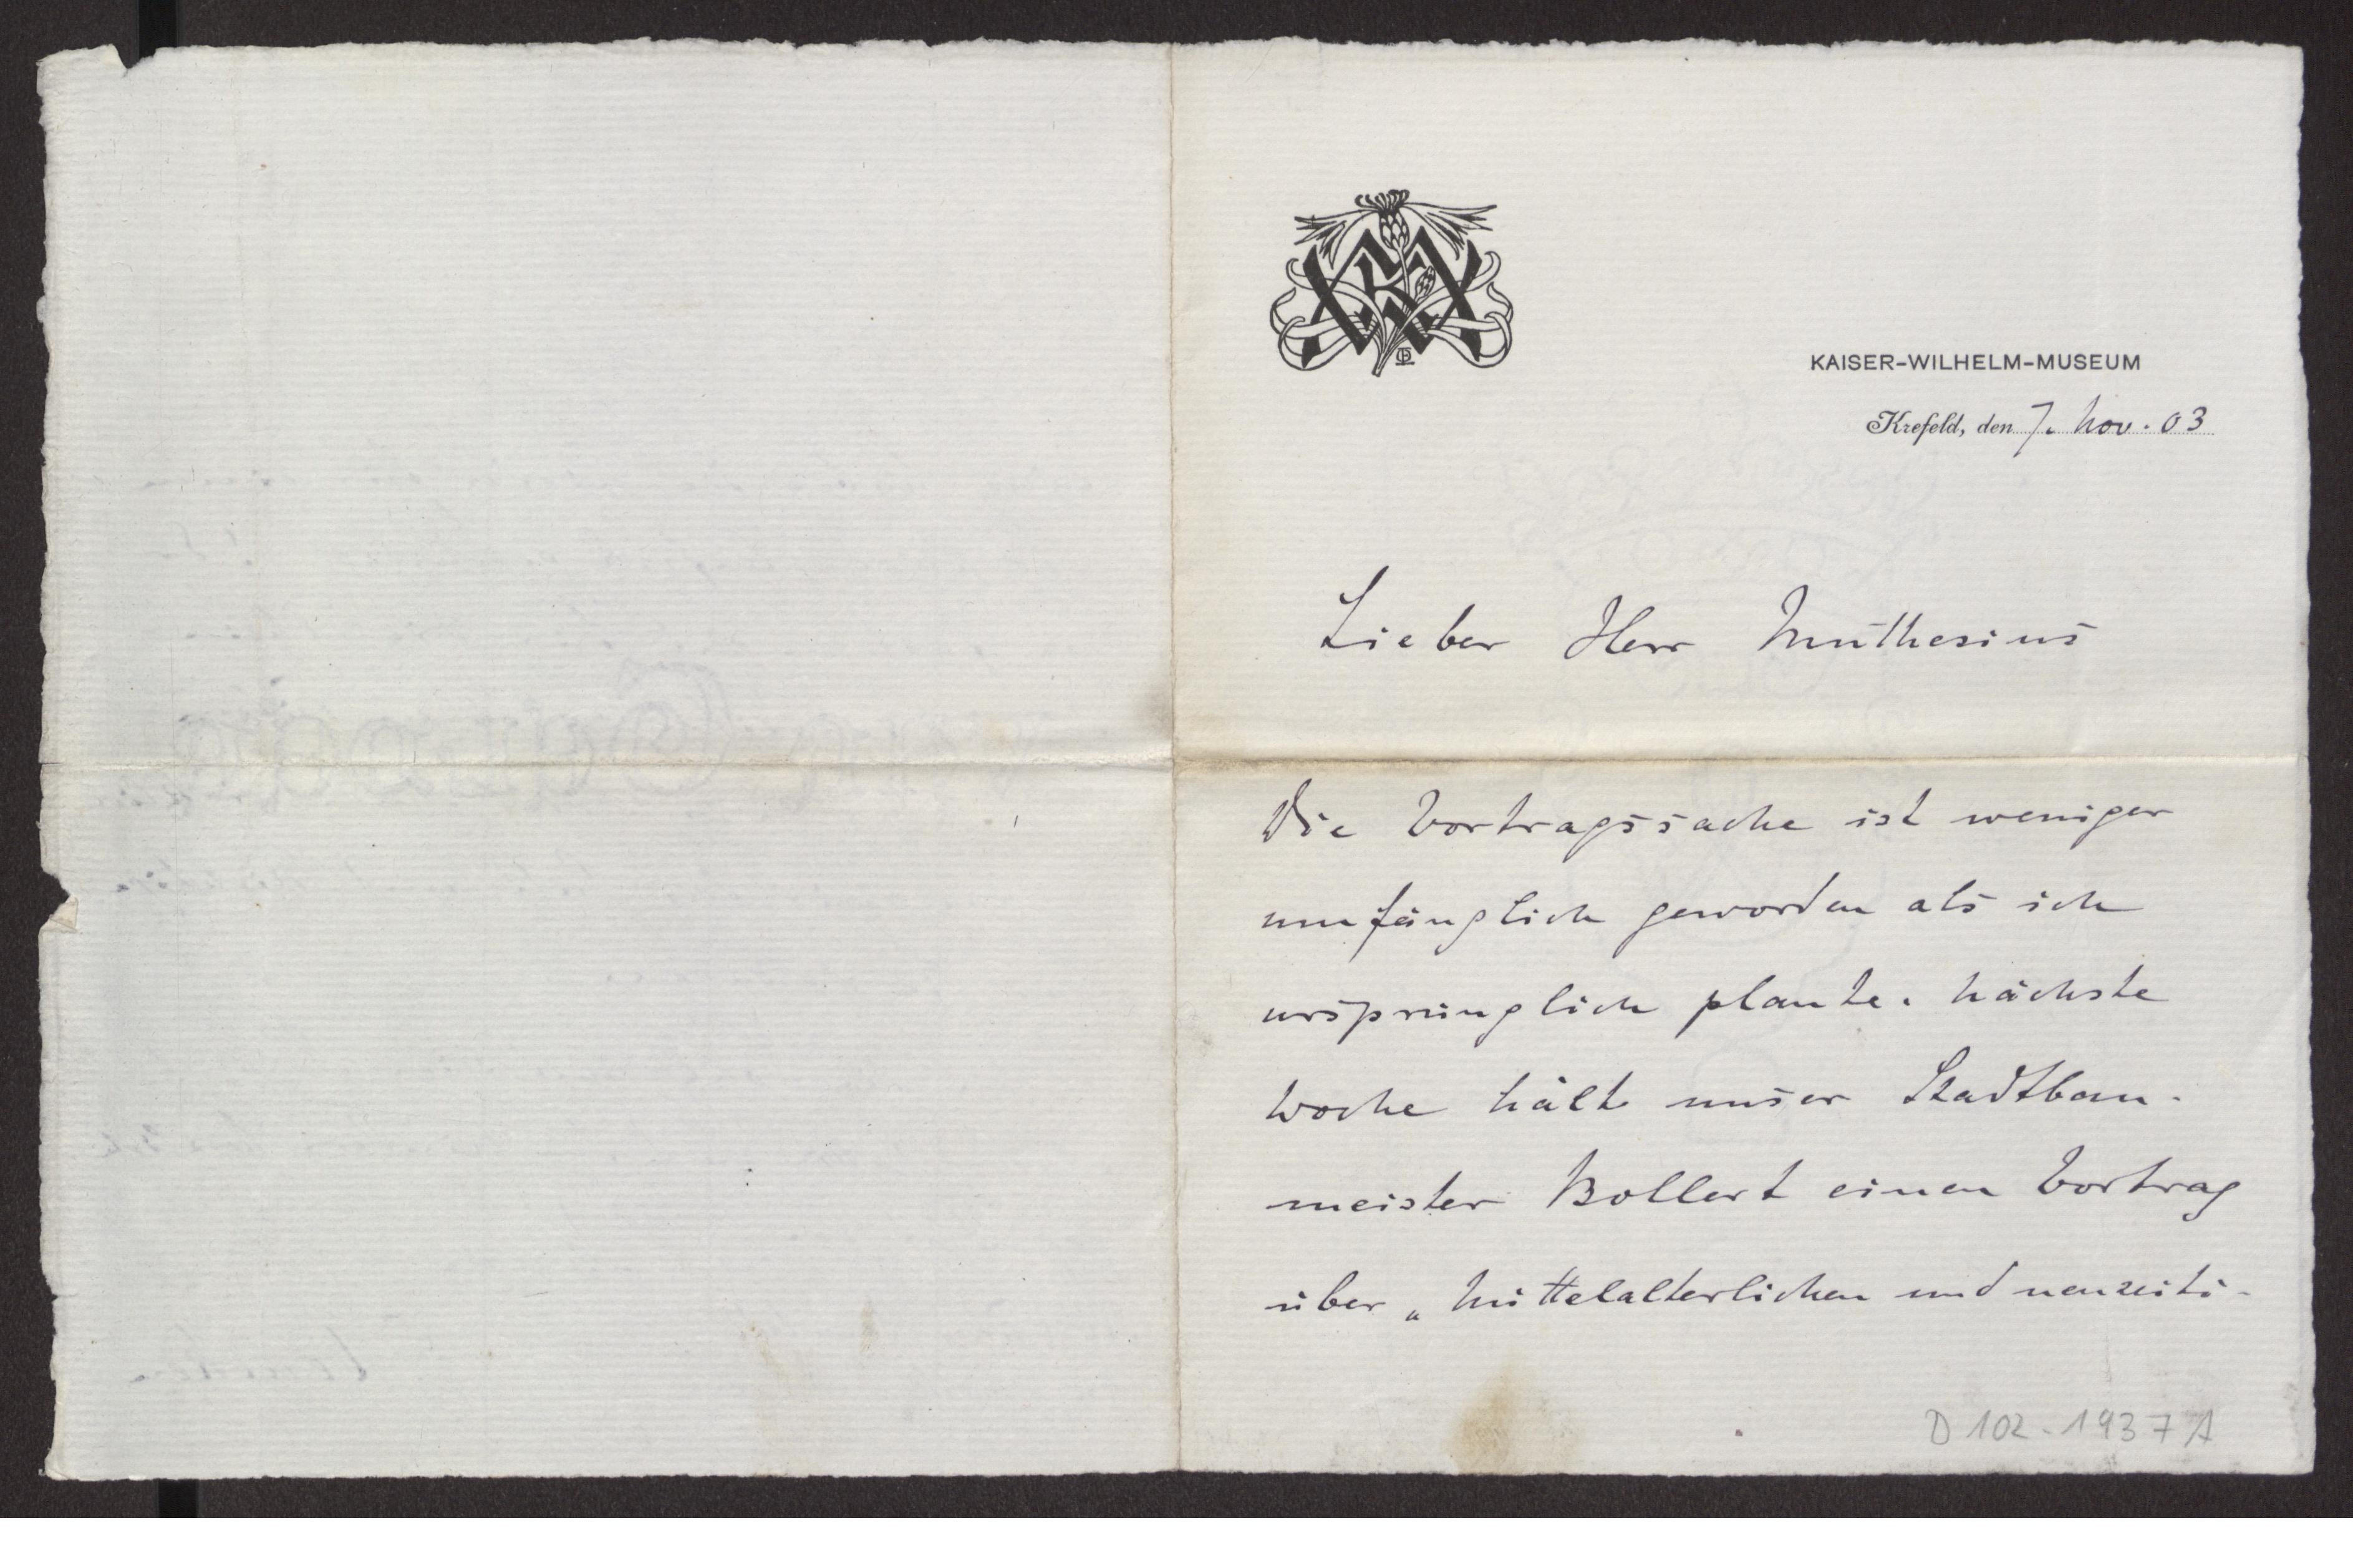 KAISER-WILHELM-MUSEUM
Krefeld, den 7. Nov. 03
Lieber Herr Muthesius
Die Vortragssache ist weniger
umfänglich geworden als ich
ursprünglich plante. Nächste
Woche hält unser Stadtbau-
meister Bollert einen Vortrag
über „Mittelalterlichen und neuzeitli-
D 102-1937 A